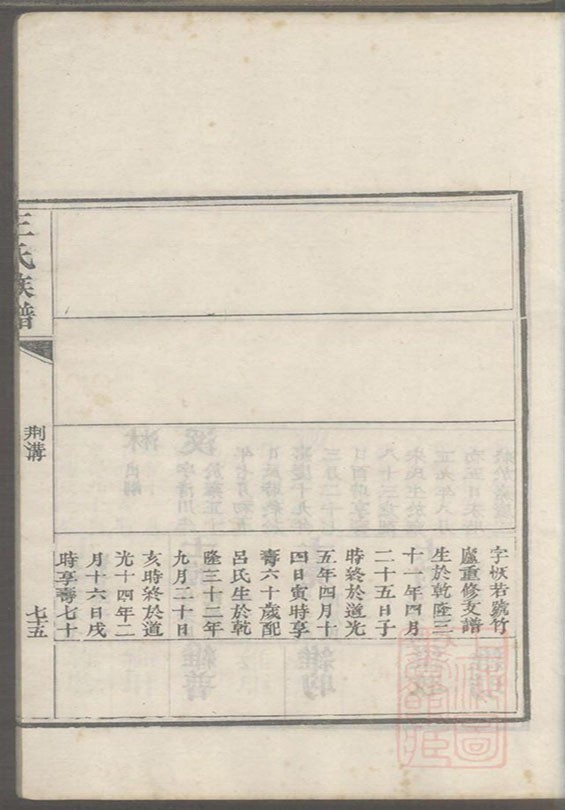 字栨若號竹
廬重修支譜
生於乾隆三
十一年四月
二十五日子
時終於道光
五年四月十
四日寅時享
壽六十歲配
呂氏生於乾
隆三十二年
九月二十日
亥時終於道
光十四年二
月十六日戌
時享壽七十
王氏族譜
荆溝
七十五